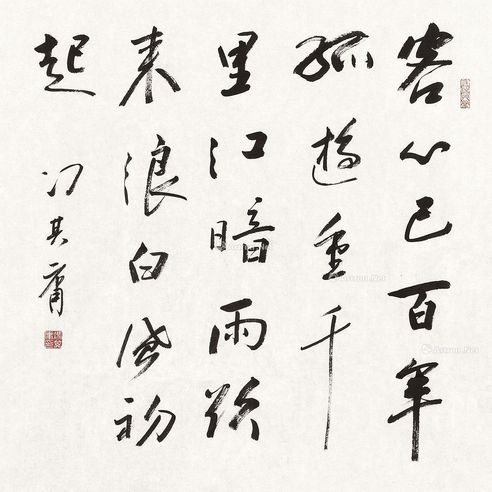 客心已百年
孤遊重千
里江暗雨欲
来浪白风初
起
冯其庸
Artron.Net